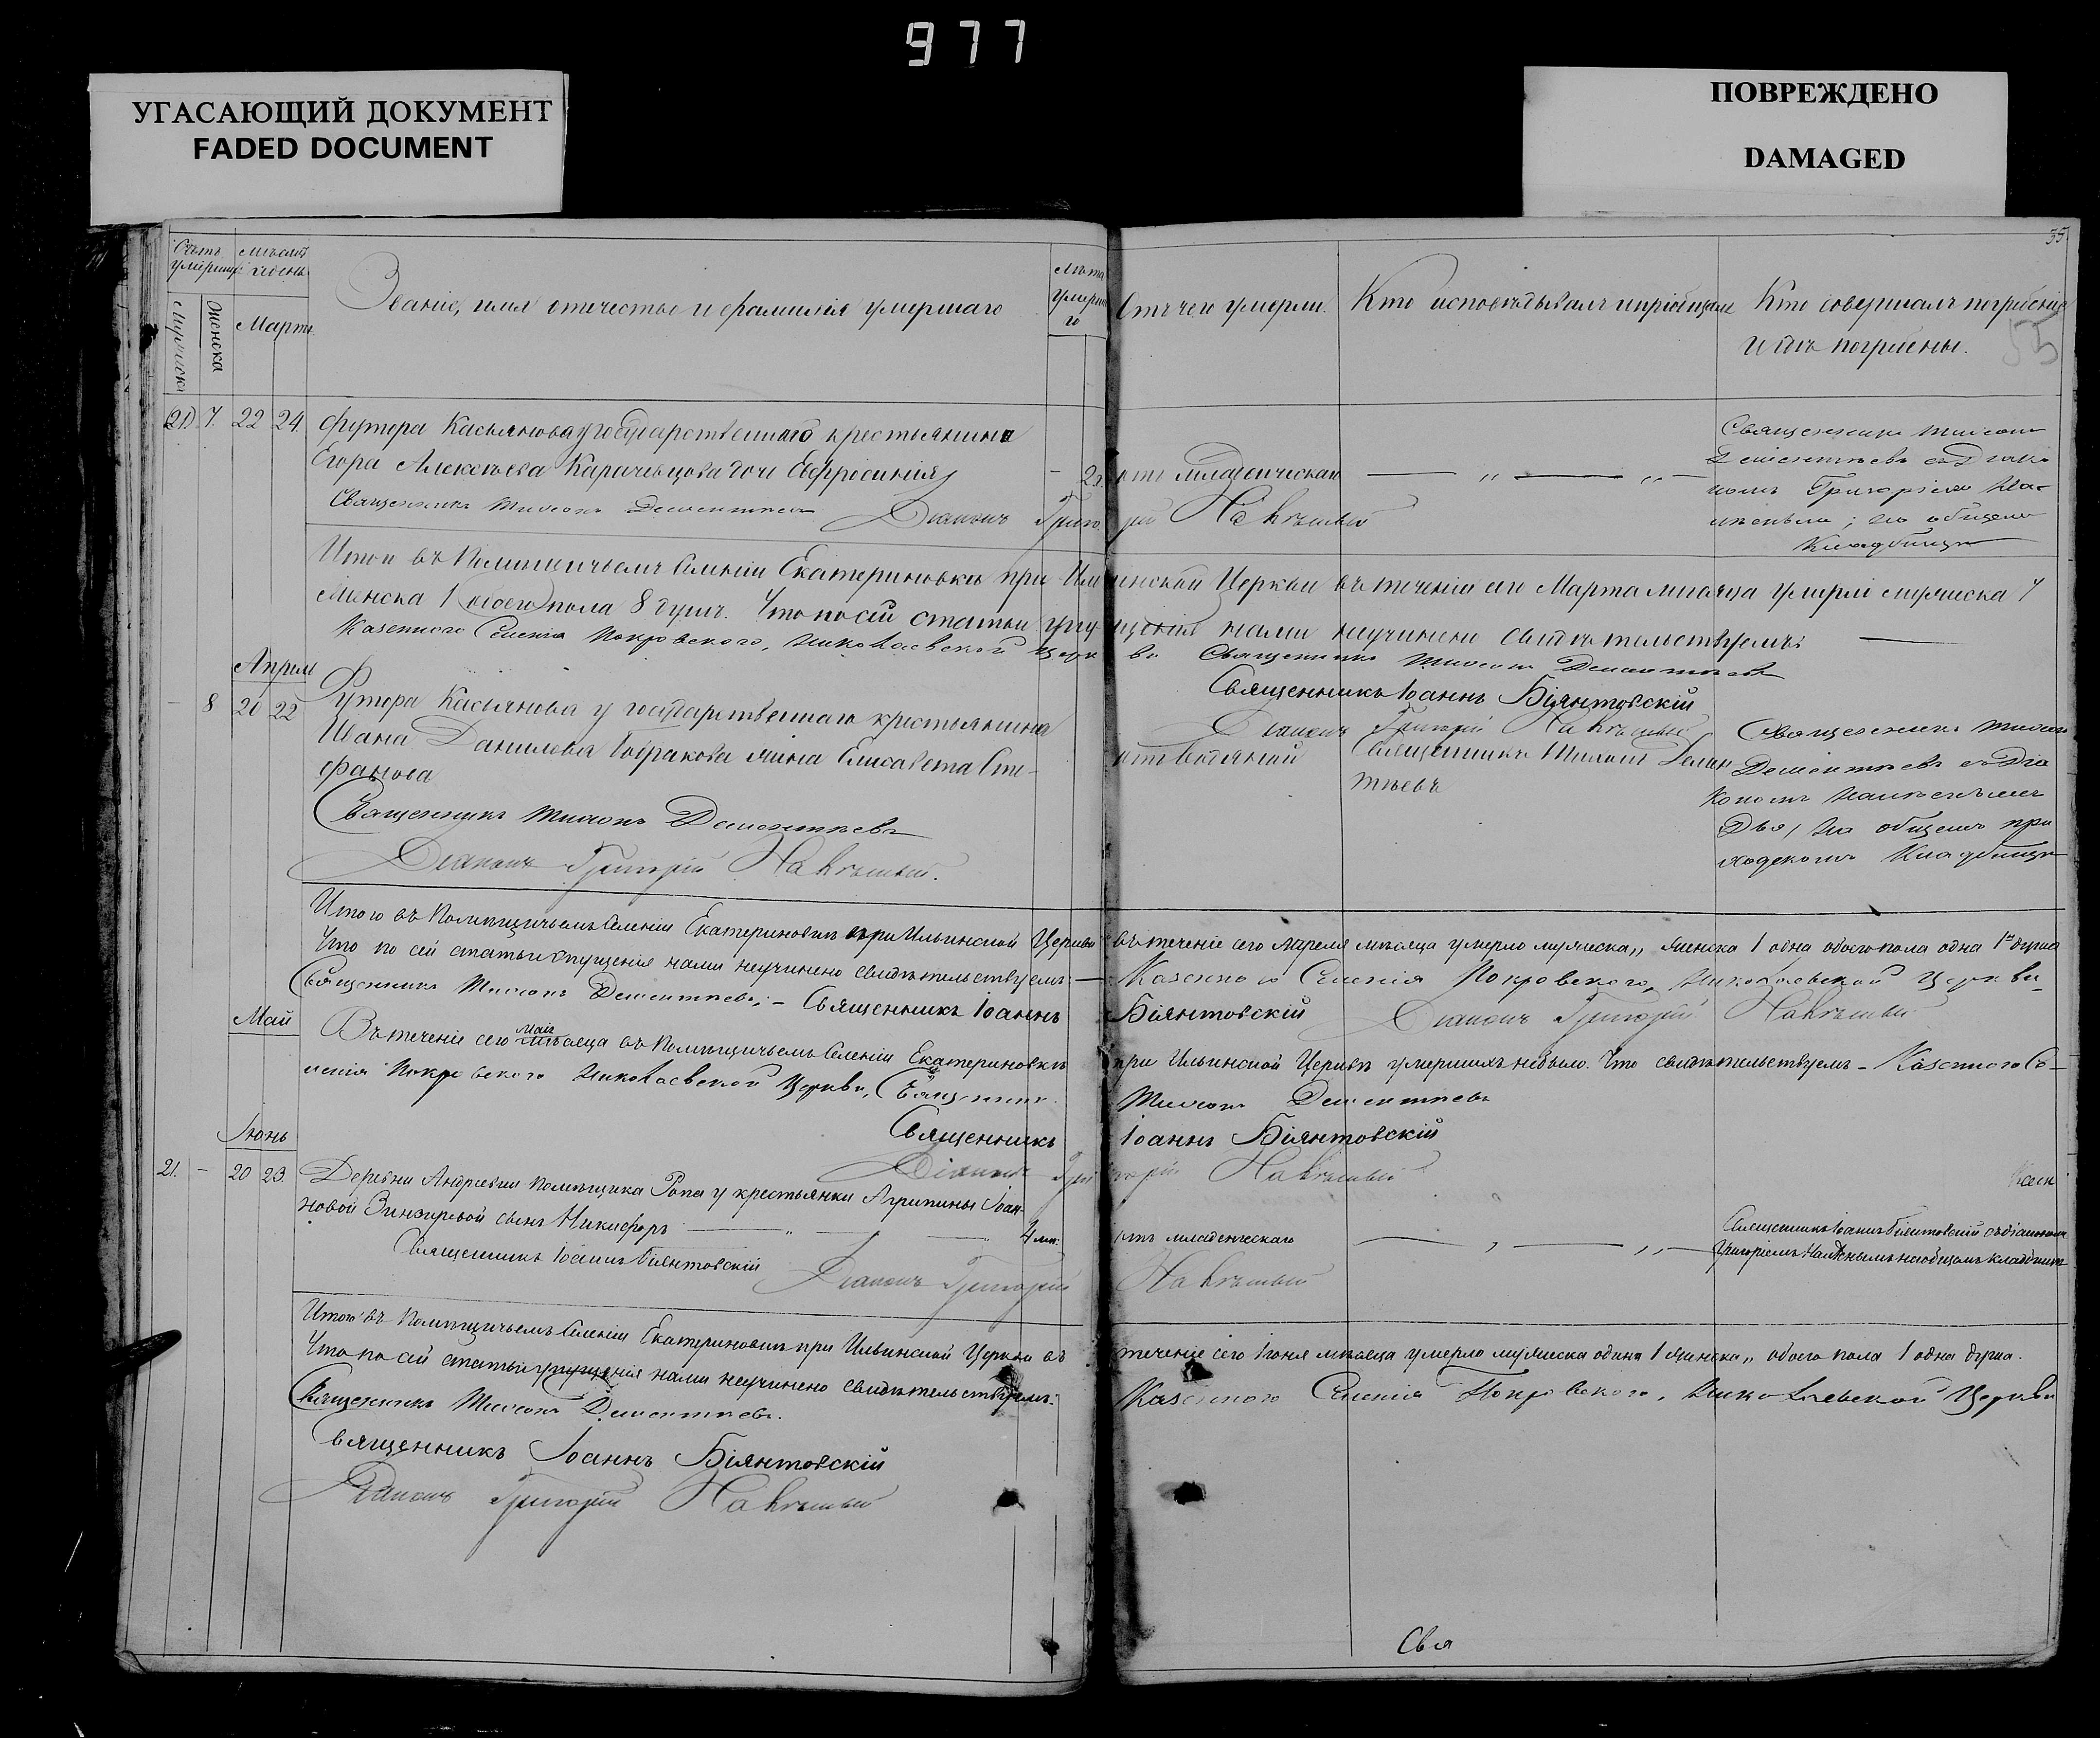 977
УГАСАЮЩИЙ ДОКУМЕНТ
FADED DOCUMENT
ПОВРЕЖДЕНО
DAMAGED
35.
Счетъ умершихъ
Мужеска
Женска
Мѣсяцъ и день
Мартъ
Званіе, имя отечество и фамилія умершаго
Лѣта умершаго
Отъ чего умерли.
Кто исповѣдывалъ и пріобщалъ
Кто совершалъ погребеніе
и гдѣ погребены.
7. 22 24. Футора Касьянова у государственнаго крестьянина
Егора Алексѣева дочь Евфросинія
2.
отъ младенческой
Священникъ Тихонъ Дементьевъ
Діаконъ Григорій
Священникъ Тихонъ
Дементьевъ съ Діако
номъ Григоріемъ
на общемъ
Кладбищѣ
Итого въ Помѣщичьемъ Селеніи Екатериновкѣ при Ильинской Церкви въ теченіи сего Марта мѣсяца умерло мужеска 7
женска 1 обоего пола 8 душъ. Что по сей статьи упущенія нами неучинено свидѣтельствуемъ
Казенного Селенія Покровского, Николаевской Церкви Священникъ Тихонъ Дементьевъ
Священникъ Іоаннъ Біянтовскій
Діаконъ Григорій
Апрель
8 20 22 Футора Касьянова у государственнаго крестьянина
Ивана Данилова жена Елисавета Сте-
фанова
отъ водяной
Священникъ Тихонъ Демен
тьевъ
Священникъ Тихонъ
Дементьевъ съ Діа
кономъ
на общемъ при
ходскомъ Кладбищѣ
Священникъ Тихонъ Дементьевъ
Діаконъ Григорій
Итого въ Помѣщичьемъ Селеніи Екатериновкѣ при Ильинской Церкви въ теченіе сего Апреля мѣсяца умерло мужеска „ женска 1 одна обоего пола одна 1 душа
Что по сей статьи опущенія нами неучинено свидѣтельствуемъ — Казенного Селенія Покровского, Николаевской Церкви
Священникъ Тихонъ Дементьевъ, – Священникъ Іоаннъ Біянтовскій Діаконъ Григорій
Май
Въ теченіе сего мая мѣсяца въ Помѣщичьемъ Селеніи Екатериновкѣ при Ильинской Церкви умершихъ небыло. Что свидѣтельствуемъ – Казенного Се–
ленія Покровского Николаевской Церкви, Священникъ Тихонъ Дементьевъ
Священникъ Іоаннъ Біянтовскій
Діаконъ Григорій
Іюнь
21. – 20 23. Деревни Андреевки помѣщика Ропа у крестьянки Агрипины Іоан-
новой сынъ Никифоръ
4 мѣ:
отъ младенческаго
Священникъ Іоаннъ Біянтовскій съ діакономъ
Григоріемъ на общемъ кладбищѣ
Священникъ Іоаннъ Біянтовскій
Діаконъ Григорій
Итого въ Помѣщичьемъ Селеніи Екатериновкѣ при Ильинской Церкви въ теченіе сего Іюня мѣсяца умерло мужеска одинъ 1 женска „ обоего пола 1 одна душа.
Что по сей статьи упущенія нами неучинено свидѣтельствуемъ: Казенного Селенія Покровского, Николаевской Церкви
Священникъ Тихонъ Дементьевъ.
Священникъ Іоаннъ Біянтовскій
Діаконъ Григорій
Свя